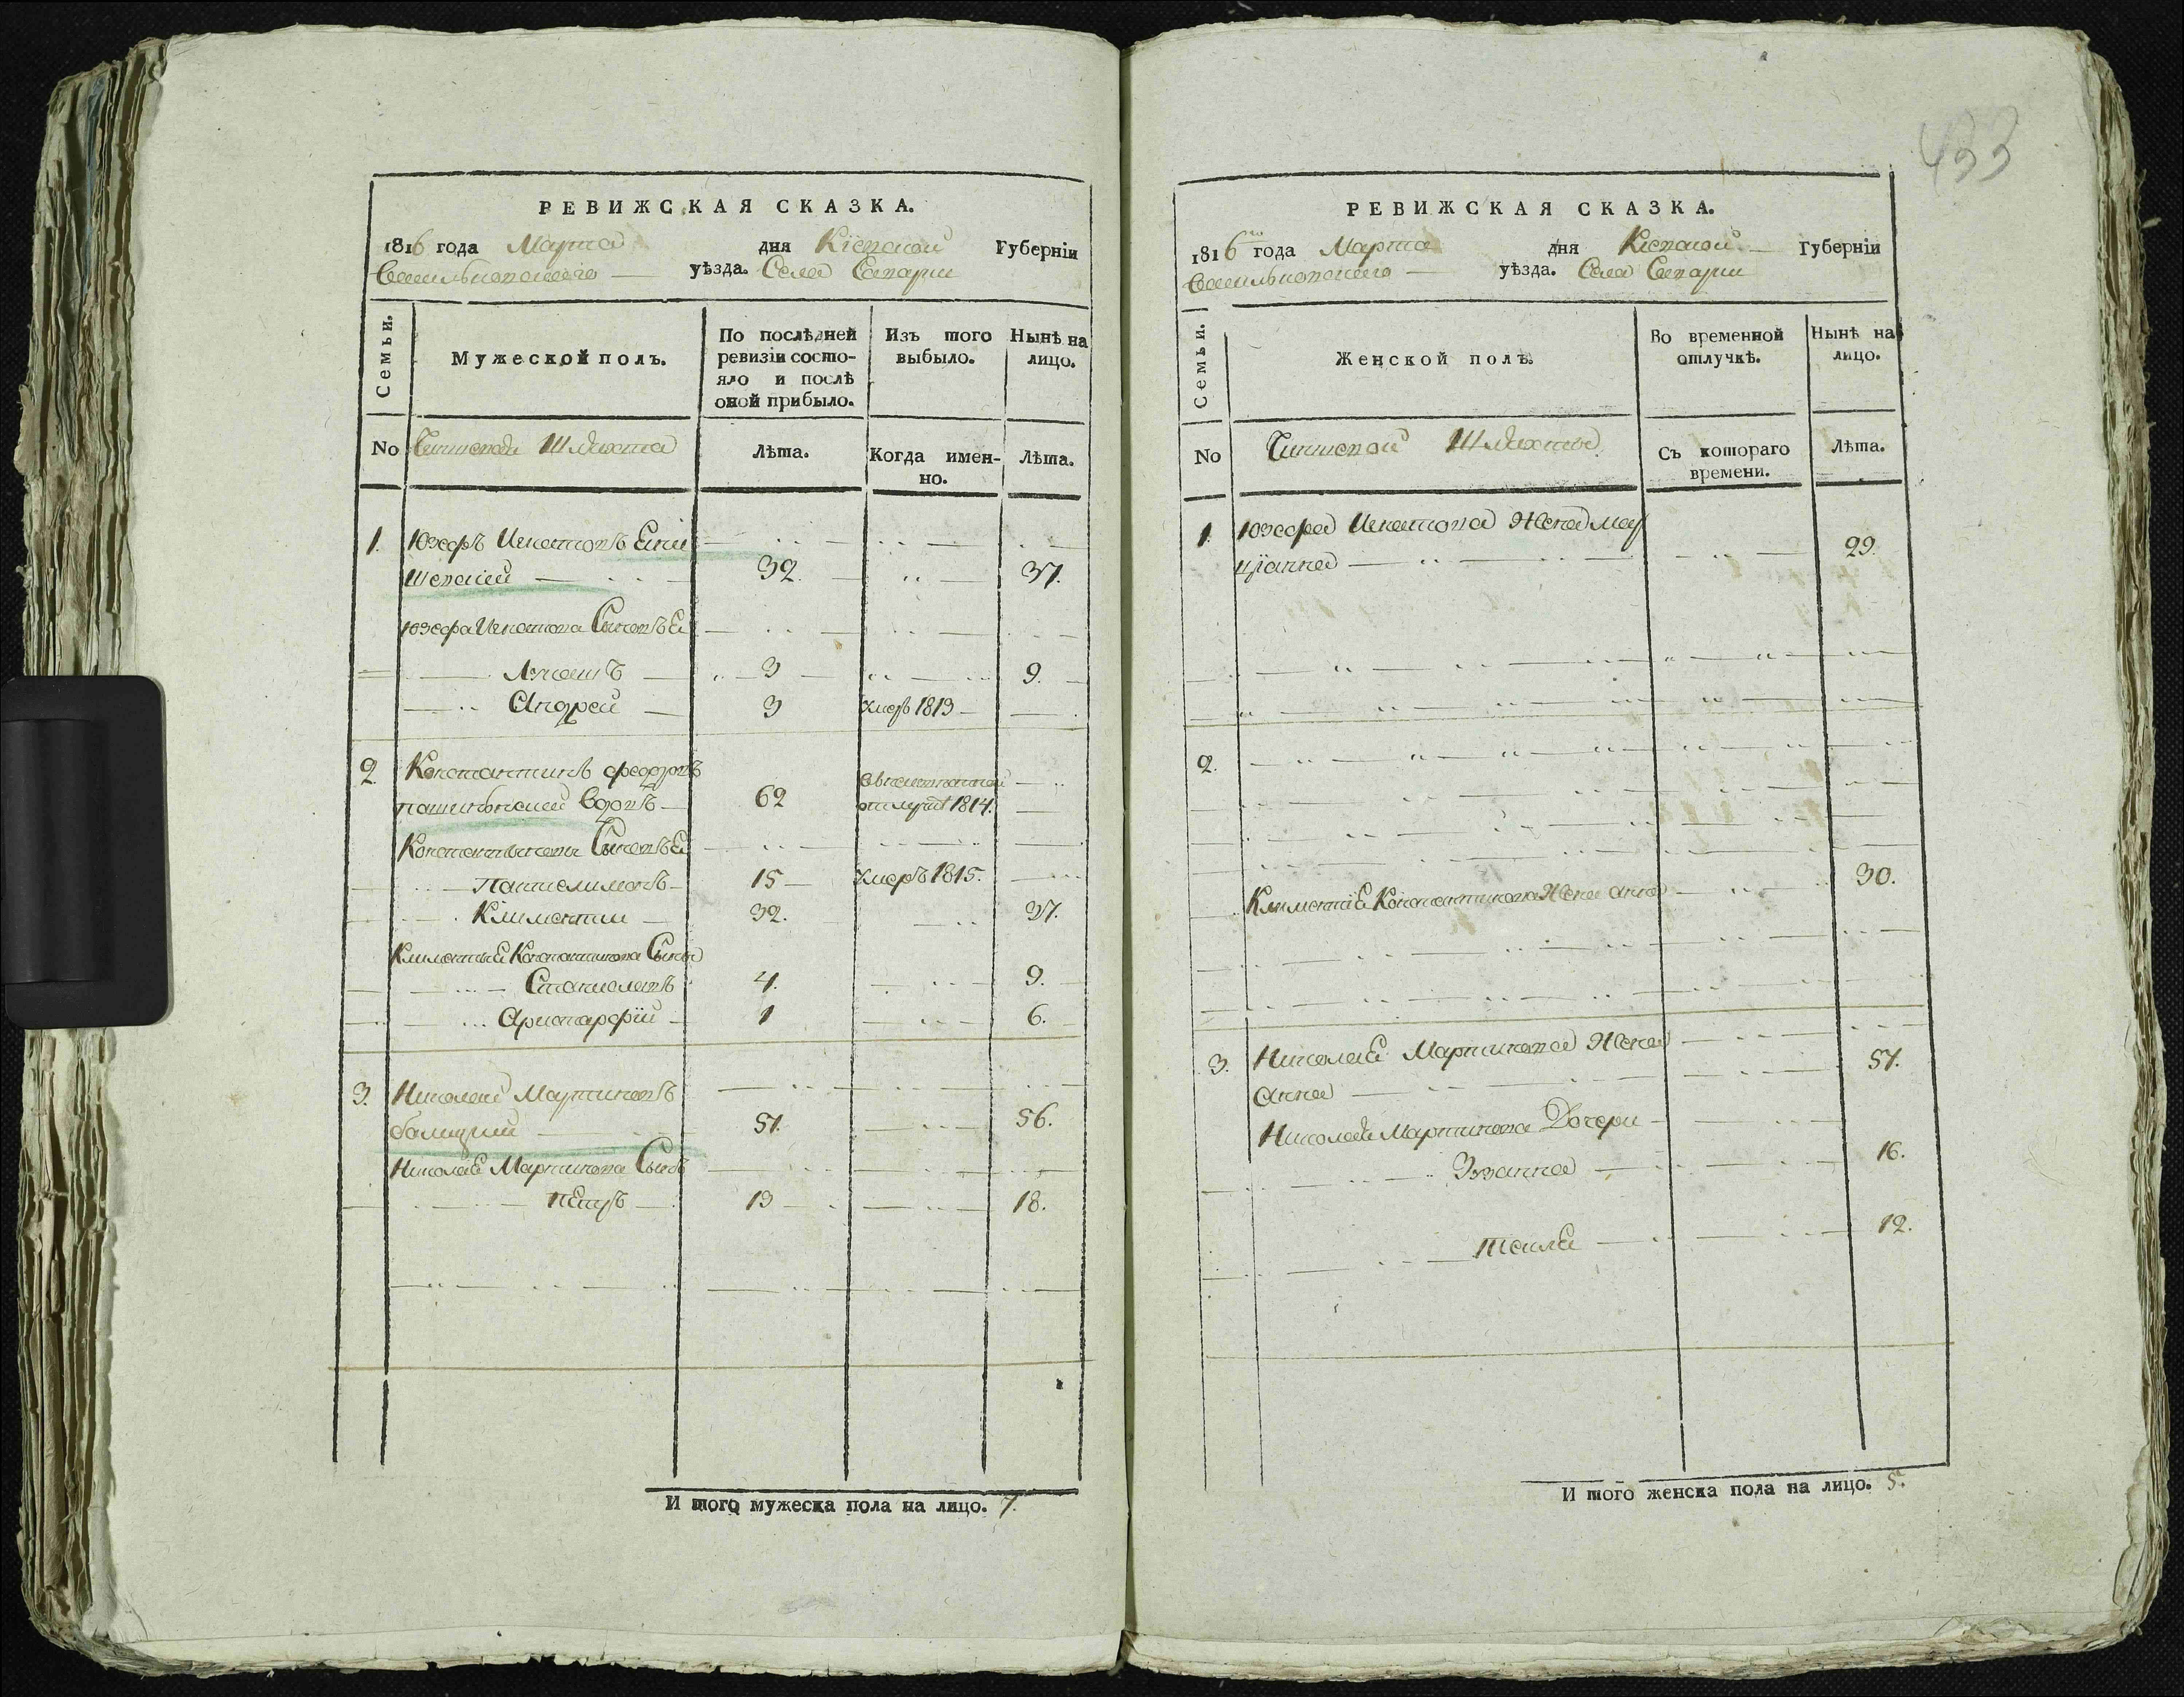 433
РЕВИЖСКАЯ СКАЗКА.
1816 года Марта дня Кіевской Губерніи
Васильковскаго уѣзда. Села
Семьи.
Мужеской полъ.
По послѣдней ревизіи состояло и послѣ оной прибыло.
Изъ того выбыло.
Нынѣ на лицо.
No Чиншевой Шляхта
Лѣта.
Когда именно.
Лѣта.
1. Юзефъ Игнатовъ
32. 37.
Юзефа Игнатова Сыновья
3 9.
Андрей 3 умеръ 1813
2 Константинъ Федоровъ
вдовъ 62 1814.
Константиновы Сыновья
Пантелимонъ 15 умеръ 1815.
Климентии 32. 37.
Климентия Константинова Сыны
Станиславъ 4. 9.
1 6.
3. Николай Мартиновъ
51. 56.
Николая Мартинова Сынъ
Петръ 13 18.
И того мужеска пола на лицо. 7.
РЕВИЖСКАЯ СКАЗКА.
1816го года Марта дня Кіевской Губерніи
Васильковскаго уѣзда. Села
Семьи.
Женской полъ.
Во временной отлучкѣ.
Нынѣ на лицо.
No Чиншевой Шляхты
Съ котораго времени.
Лѣта.
1. Юзефа Игнатова Жена Мар
ціанна 29.
2.
Климентія Константинова Жена Анна 30.
3. Николая Мартинова Жена
Анна 51.
Николая Мартинова Дочери
16.
Текля 12.
И того женска пола на лицо. 5.